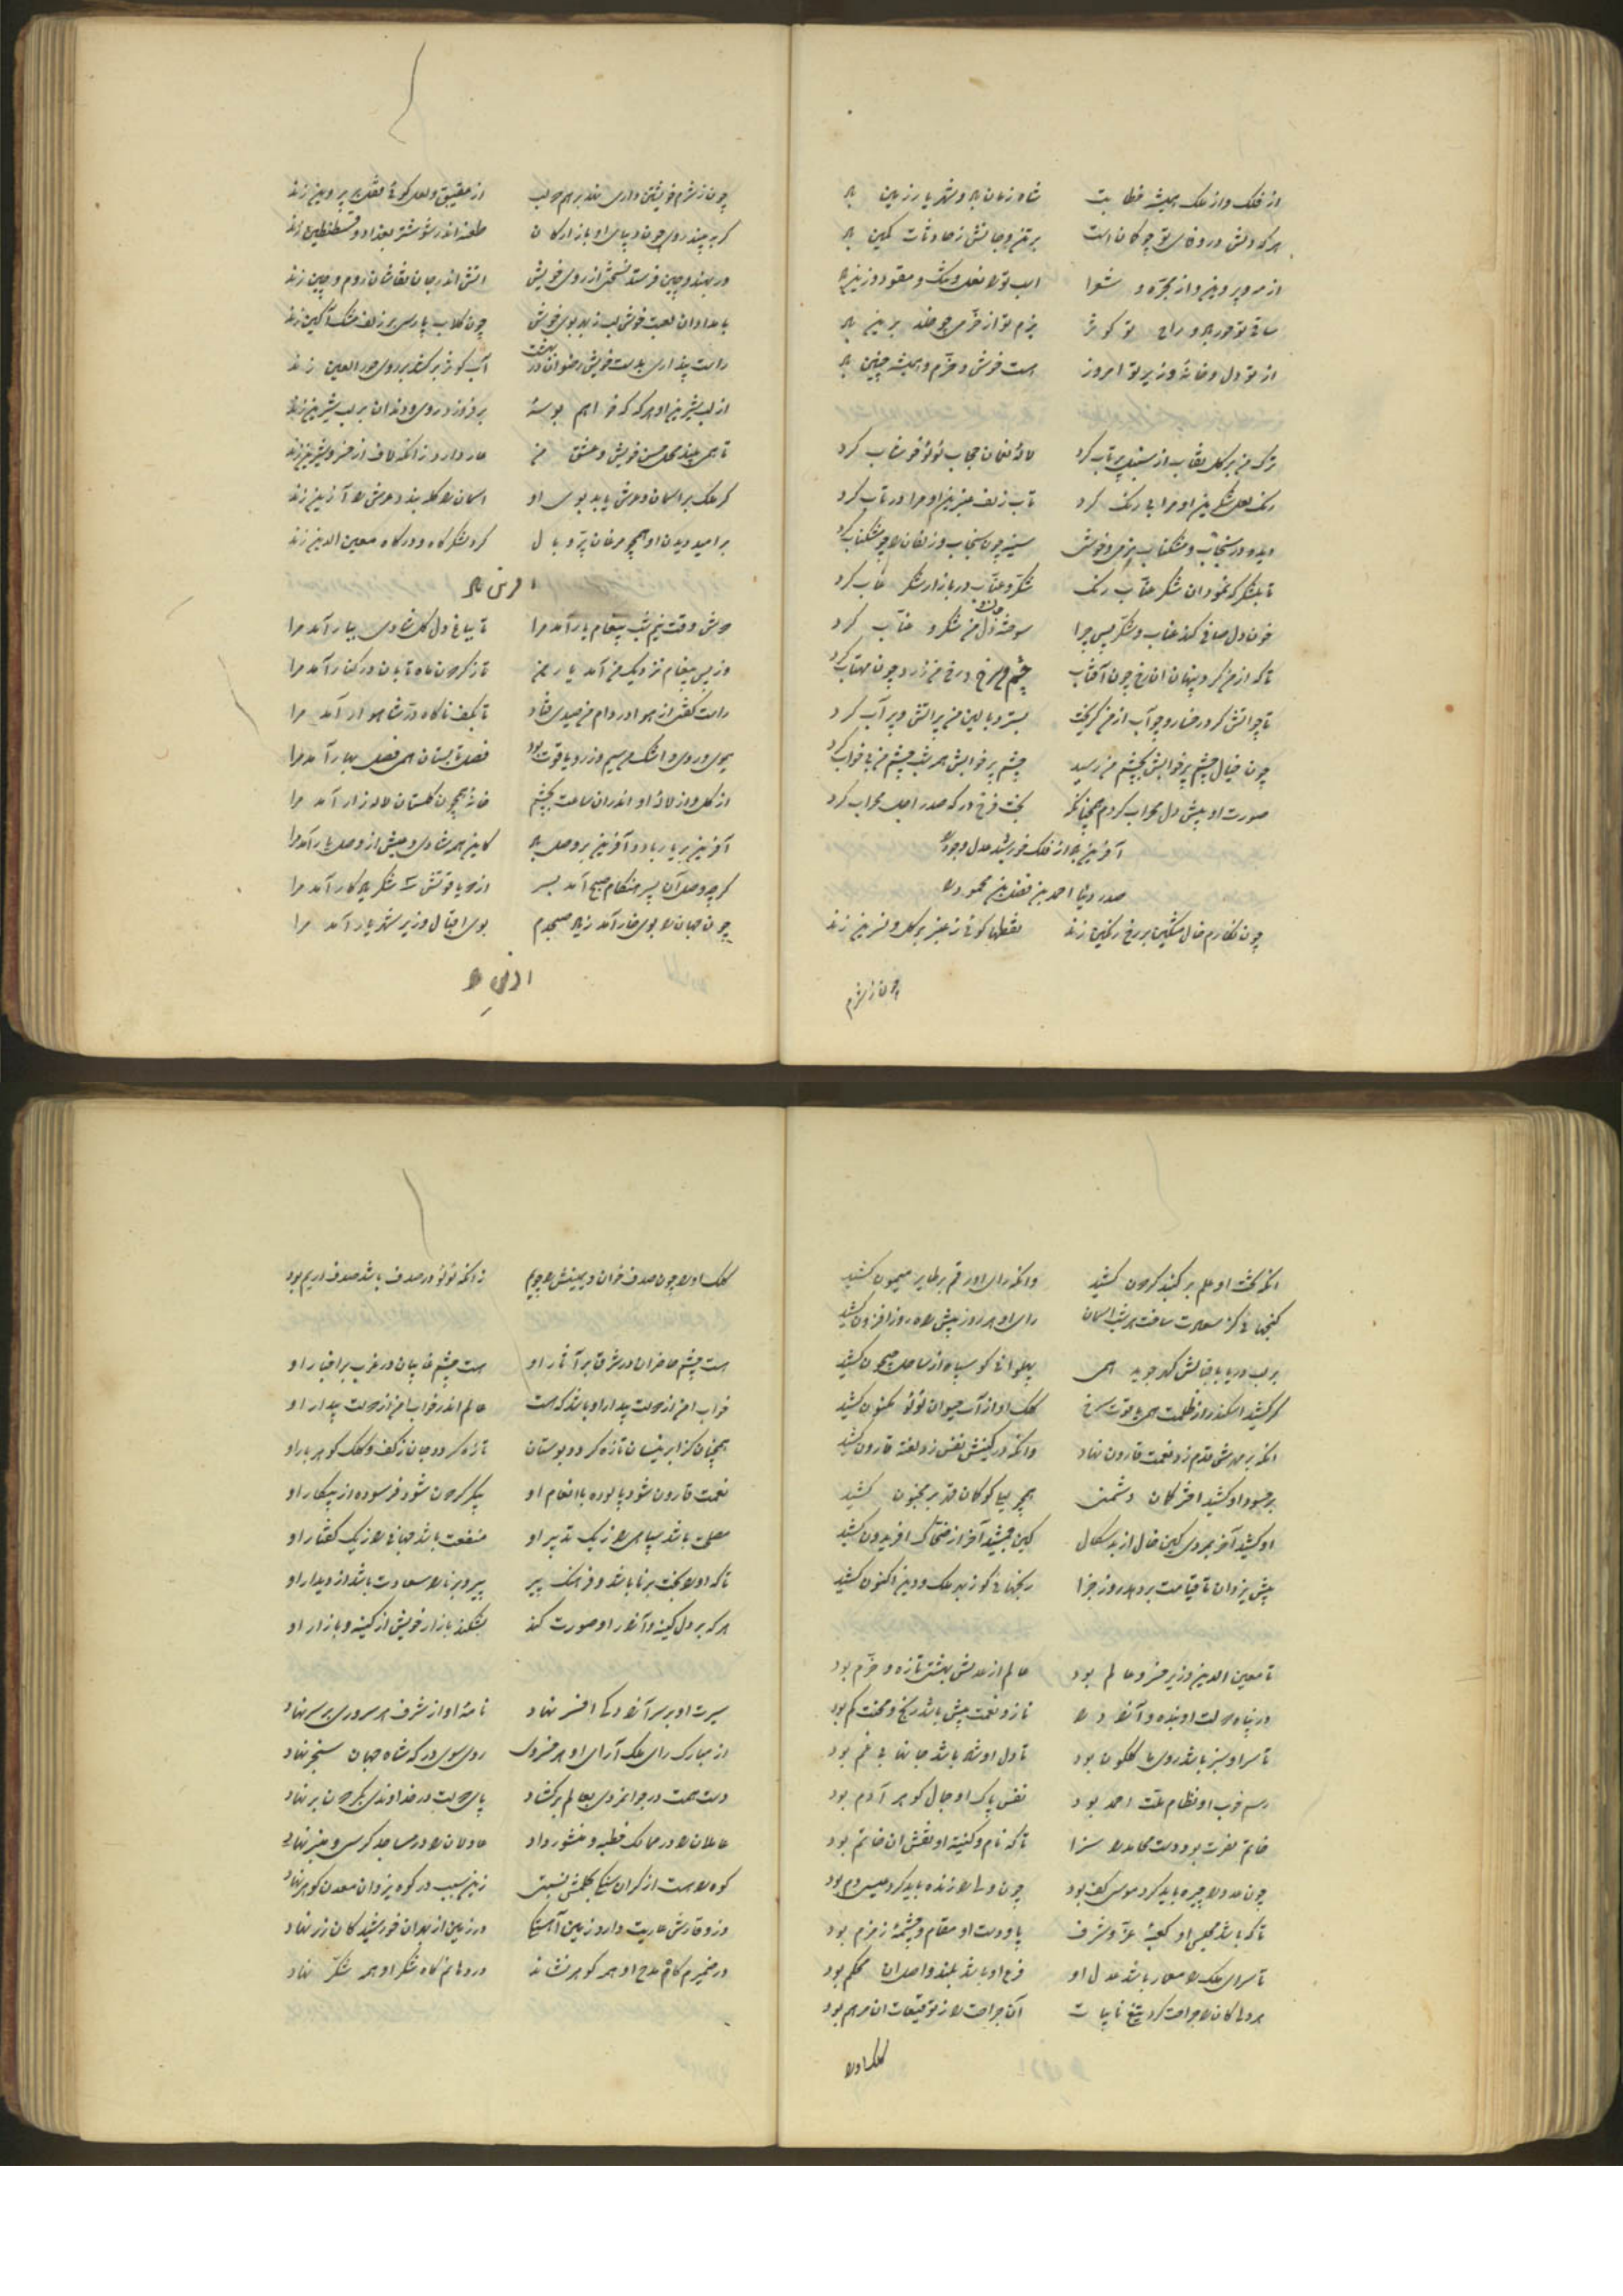 از فلک و از ملک همیشه خطابت شاه زمان باد و شهریار زمین باد
هر که دلش در وفای تو چو کمان است بر تن و جانش ز حادثات کمین باد
از مه و پروین و از مجره و شعرا اسب تو را نعل و تنگ و مقود و زین باد
ساقی تو حور باد و راح تو کوثر بزم تو از خرمی چو خلد برین باد
از تو دل و خانهٔ وزیر تو امروز هست خوش و خرم و همیشه چنین باد
ترک من بر گل نقاب از سنبل پرتاب کرد لالهٔ نعمان حجاب لؤلؤ خوشاب کرد
رنگ لعل شکرین او مرا بی رنگ کرد تاب زلف عنبرین او مرا در تاب کرد
دیده در سنجاب و مشکناب بر من و خوش سینه چون سنجاب و زلفان را چو مشکناب کرد
تا بشکر که نمود آن شکر عناب رنگ شکر و عناب در بازار شکر ناب کرد
خون دل صافی کند عناب و شکر پس چرا سوخته خون دل من شکر و عناب کرد
تا که از من کرد پنهان آن رخ چون آفتاب چشم من سرخ و رخ من زرد چون مهتاب کرد
تا چو آتش کرد رخسار و چو آب از من گریخت بستر و بالین من پر آتش و پر آب کرد
چون خیال چشم پر خوابش بچشم من رسید چشم پر خوابش همه شب چشم من بی خواب کرد
صورت او پیش دل محراب کردم همچنانکه بخت فرخ درگه صدر اجل محراب کرد
آفرین باد از فلک خورشید عدل و جود را
صدر دنیا احمد بن فضل بن محمود را
چون نگارم خال مشکین بر رخ رنگین زند نقطها گوئی ز عنبر بر گل و نسرین زند
چون ز شرم
چون ز شرم خویشتن داری بخندد برهم دو لب از عقیق و لعل گوئی قفل بر پروین زند
گر ببیند روی چون دیبای او بازارگان طعنه اندر ششتر و بغداد و قسطنطین زند
ور بهند و چین فرستد نسختی از روی خویش آتش اندر جان نقاشان روم و چین زند
بامدادان لعبت خوش لب ز بهر بوی خوش چون گلاب پارسی بر زلف مشک آگین زند
راست پنداری بدست خویش رضوان در بهشت آب کوثر برکشد بر روی حور العین زند
از لب شیرین او هر گه که خواهم بوسهٔ برفروزد روی و دندان بر لب شیرین زند
تا همی بیند محل حسن خویش و عشق من عار دارد زانکه لاف از خسرو و شیرین زند
گر ملک بر آسمان و عرش یابد بوی او آسمان را کله بندد عرش را آذین زند
بر امید دیدن او همچو مرغان پر و بال گرد لشکرگاه و درگاه معین الدین زند
آفرین باد
دوش وقت نیم شب پیغام یار آمد مرا تا بباغ دل گل شادی ببار آمد مرا
وز پس پیغام نزدیک من آمد یار من تا ز گردون ماه تابان در کنار آمد مرا
راست گفتی از هوا در دام من صیدی فتاد تا بکف ناگاه در شاهوار آمد مرا
بوی و روی و اشک من سیم و زر و یاقوت بود فصل تابستان همی فصل بهار آمد مرا
از گل و از لالهٔ او اندران ساعت بچشم خانه همچون گلستان لاله زار آمد مرا
آفرین بر یار باد و آفرین بر وصل باد کاین همه شادی و عیش از وصل یار آمد مرا
گرچه وصل آن پسر هنگام صبح آمد بسر از دو یاقوتش شکر باد کار آمد مرا
چون جهان را بوی خار آمد ز باد صبحدم بوی اقبال وزیر شهریار آمد مرا
آفرین باد
آنکه بخت او علم بر گنبد گردون کشید وآنکه رای او رقم بر طایر میمون کشید
گنجهائی کز سعادت ساخت هر شب آسمان رای او هر روز پیش راه روزافزون کشید
بر لب دریا بنانش گهر جوید همی پهلوانی کو سپاه از ساحل جیحون کشید
گر کشید اسکندر از ظلمت همی یاقوت سرخ کلک او از آب حیوان لؤلؤ مکنون کشید
آنکه بر مهرش قدم زد نعمت قارون نهاد وآنکه در کینش نفس زد لعنه قارون کشید
بر حسود او کشید اختر کمان دشمنی همچو لیلی کو کمان قهر بر مجنون کشید
او کشید آخر بمردی کین خال از بدسگال کین جمشید آخر از ضحاک افریدون کشید
پیش یزدان تا قیامت برد هر روز جزا رنجهائی کو ز بهر ملک و دین اکنون کشید
تا معین الدین وزیر خسرو عالم بود عالم از عدلش بهشتی تازه و خرم بود
در پناه دولت او بنده و آزاد را ناز و نعمت بیش باشد رنج و محنت کم بود
تا سر او سبز باشد روی ما گلگون بود تا دل او شاد باشد جان ما بی غم بود
رسم خوب او نظام ملت احمد بود نفس پاک او جمال گوهر آدم بود
خاتم نصرت بود دست محامد را سزا تا که نام و کنیت او نقش آن خاتم بود
چون عدو را چیره باید کرد موسی کف بود چون ولی را زنده باید کرد عیسی دم بود
تا که باشد مجلس او کعبهٔ عز و شرف پا و دست او مقام و چشمهٔ زمزم بود
تا سرای ملک را معمار باشد عدل او فرع او باشد بلند و اصل آن محکم بود
هر دلی کان را جراحت کرد تیغ نایبات آن جراحت را ز توقیعات آن مرهم بود
کلک او را
کلک او را چون صدف خوان و یمینش را چو یم زانکه لؤلؤ در صدف باشد صدف در یم بود
هست چشم حاضران در شرق بر آثار او هست چشم غایبان در غرب بر اخبار او
خواب امن از دولت بیدار او باشد که هست عالم اندر خواب امن از دولت بیدار او
همچنان کز ابر نیسان تازه گردد بوستان تازه گردد جان ز کف و کلک گوهربار او
نعمت قارون شود پالوده با انعام او پیکر گردون شود فرسوده از پیکار او
مصلحت باشد سپاهی را ز یک تدبیر او منفعت باشد جهانی را ز یک گفتار او
تا که او را بخت برنا باشد و فرهنگ پیر پیر و برنا را سعادت باشد از دیدار او
هر که بر دل کینه و آزار او صورت کند بشکند بازار خویش از کینه و بازار او
سیرت او بر سر آزادگی افسر نهاد نامهٔ او از شرف هر سروری بر سر نهاد
از مبارک رای ملک آرای او هر خسروی روی سوی درگه شاه جهان سنجر نهاد
دست همت در جوانمردی بعالم برگشاد پای دولت در خداوندی بگردون بر نهاد
عاملان را در ممالک خطبه و منشور داد عادلان را در مساجد کرسی و منبر نهاد
کوه را هست از گران سنگی بحلمش نسبتی زین سبب در کوه یزدان معدن گوهر نهاد
وز وقارش عاریت دارد زمین آهستگی در زمین از بهر آن خورشید کان زر نهاد
در ضمیرم گاه مدح او همه گوهر نشاند در دهانم گاه شکر او همه شکر نهاد